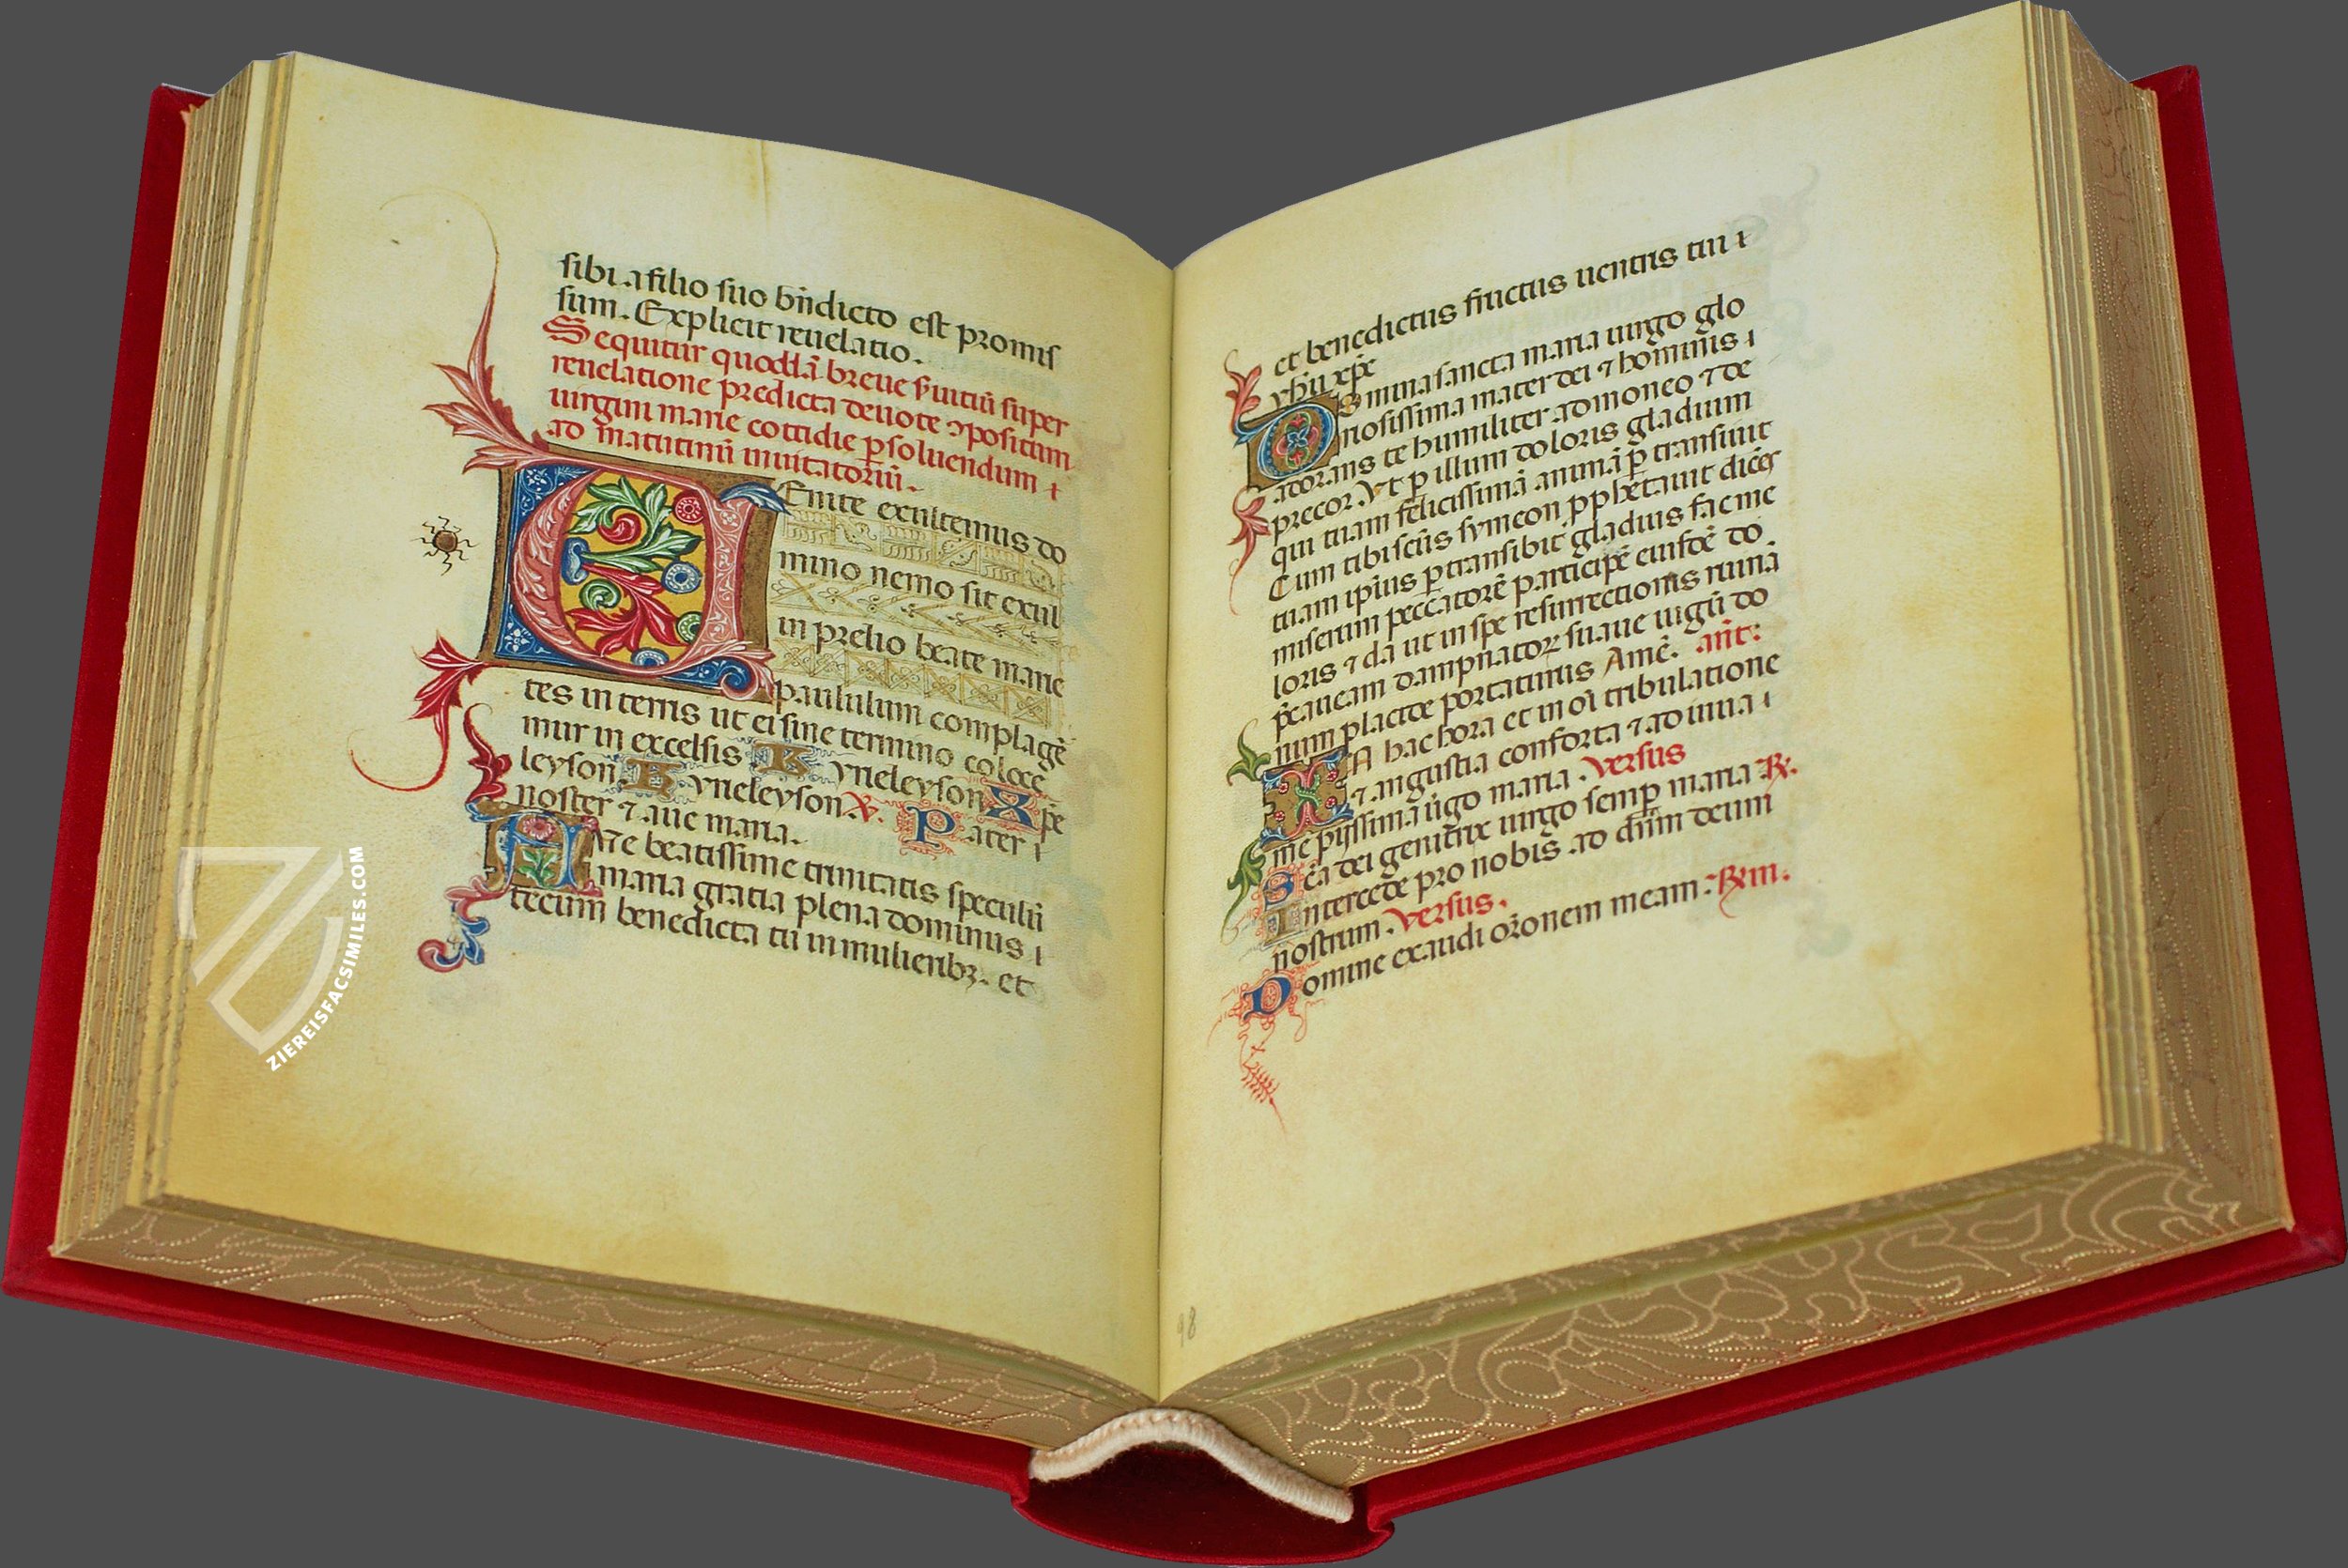 sibi a filio suo bn̄dicto est promis
sum. Explicit reuelatio.
Sequitur quoddā breue s̄uitiū super
reuelatione predicta deuote ꝯpositum
uirgini marie cottidie ꝑsoluendum ⁊
ad matutinū inuitatoriū.
Enite exultemus do
mino nemo sit exul
in prelio beate marie
paululum complagē
tes in terris ut ei sine termino coloce
mur in excelsis Kyrieleyson Xp̄e
leyson Kyrieleyson ℣. Pater
noster ⁊ aue maria.
AVe beatissime trinitatis speculū
maria gratia plena dominus
tecum benedicta tu in mulieribꝫ. et
et benedictus fructus uentris tui
yhu xp̄e
DOmina sancta maria uirgo glo
riosissima mater dei ⁊ hominis
adorans te humiliter admoneo ⁊ de
precor. Vt ꝑ illum doloris gladium
qui tuam felicissimā animā ꝑtransiuit
Cum tibi scūs symeon ꝓphetauit dicēs
tuam ip̄ius ꝑtransibit gladius fac me
miserum peccatorē participē eiusdē do
loris ⁊ da ut in spe resurrectionis ruinā
p̄caueam dampnatoꝝ suaue iugū do
mini placite portaturus Amē. an̄t:
IN hac hora et in oī tribulatione
⁊ angustia conforta ⁊ adiuua
me pijssima ūgo maria. versus
Scā dei genitrix uirgo semꝑ maria ℟.
Intercede pro nobis ad dn̄m deum
nostrum. versus.
Domine exaudi orōnem meam. ℟m.
98
ZIEREISFACSIMILES.COM